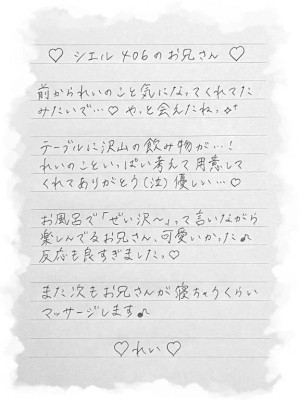 ♡ シエル 406のお兄さん ♡
前かられいのこと気になってくれてた
みたいで…♡ やっと会えたねっ✧⁺
テーブルに沢山の飲み物が…!
れいのこといっぱい考えて用意して
くれてありがとう(泣) 優しい…♡
お風呂で「ぜい沢〜」って言いながら
楽しんでるお兄さん、可愛いかった♪
反応も良すぎましたっ♡
また次もお兄さんが寝ちゃうくらい
マッサージします♪
♡ れい ♡